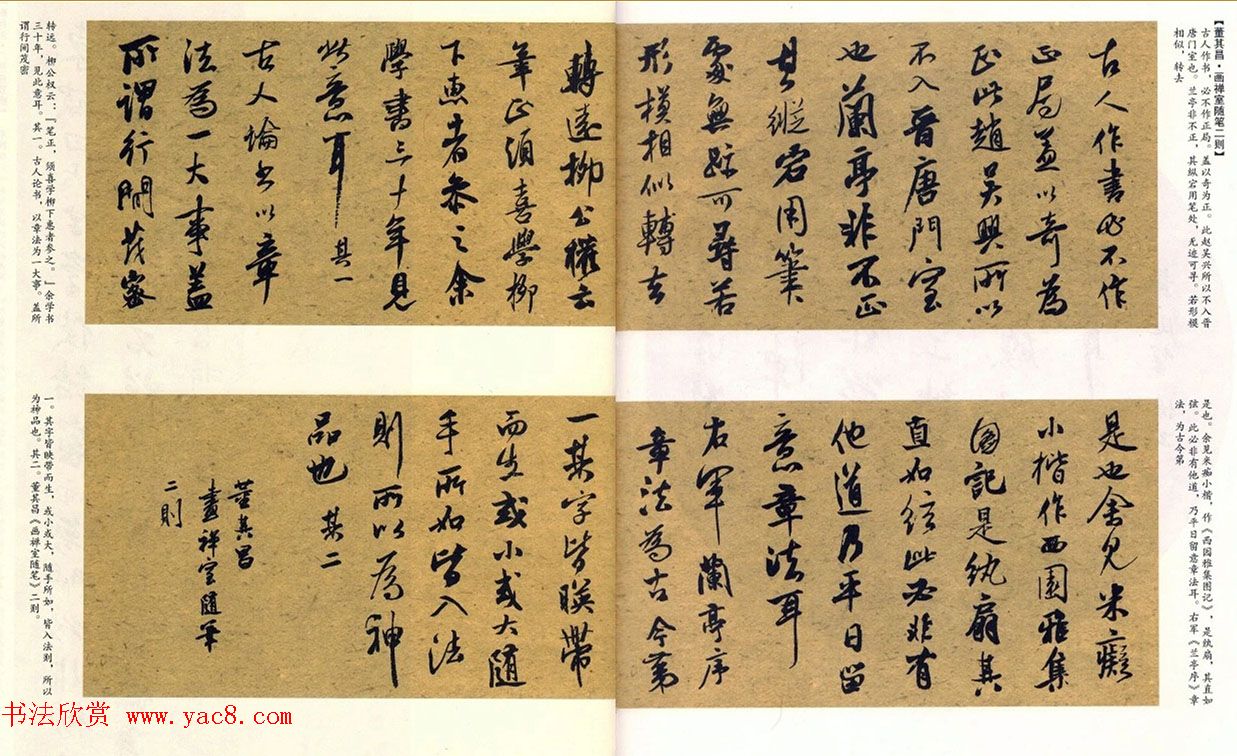 【董其昌·画禅室随笔二则】
古人作书，必不作正局。盖以奇为正。此赵吴兴所以不入晋
唐门室也。兰亭非不正，其纵宕用笔处，无迹可寻。若形模
相似，转去
古人作書必不作
正局蓋以奇為
正此趙吳興所以
不入晉唐門室
也蘭亭非不正
其縱宕用筆
處無跡可尋若
形模相似轉去
轉遠柳公權云
筆正須喜學柳
下惠者參之余
學書三十年見
此意耳 其一
古人論書以章
法為一大事蓋
所謂行間茂密
转远。柳公权云：「笔正，须喜学柳下惠者参之。」余学书
三十年，见此意耳。其一。古人论书，以章法为一大事。盖所
谓行间茂密
是也。余见米痴小楷，作《西园雅集图记》，是纨扇，其直如
弦。此必非有他道，乃平日留意章法耳。右军《兰亭序》章
法，为古今第
是也余見米癡
小楷作西園雅集
圖記是紈扇其
直如弦此必非有
他道乃平日留
意章法耳
右軍蘭亭序
章法為古今第
一其字皆映帶
而生或小或大隨
手所如皆入法
則所以為神
品也 其二
董其昌
畫禅室隨筆
二則
一。其字皆映带而生，或小或大，随手所如，皆入法则，所以
为神品也。其二。董其昌《画禅室随笔》二则。
书法欣赏 www.yac8.com